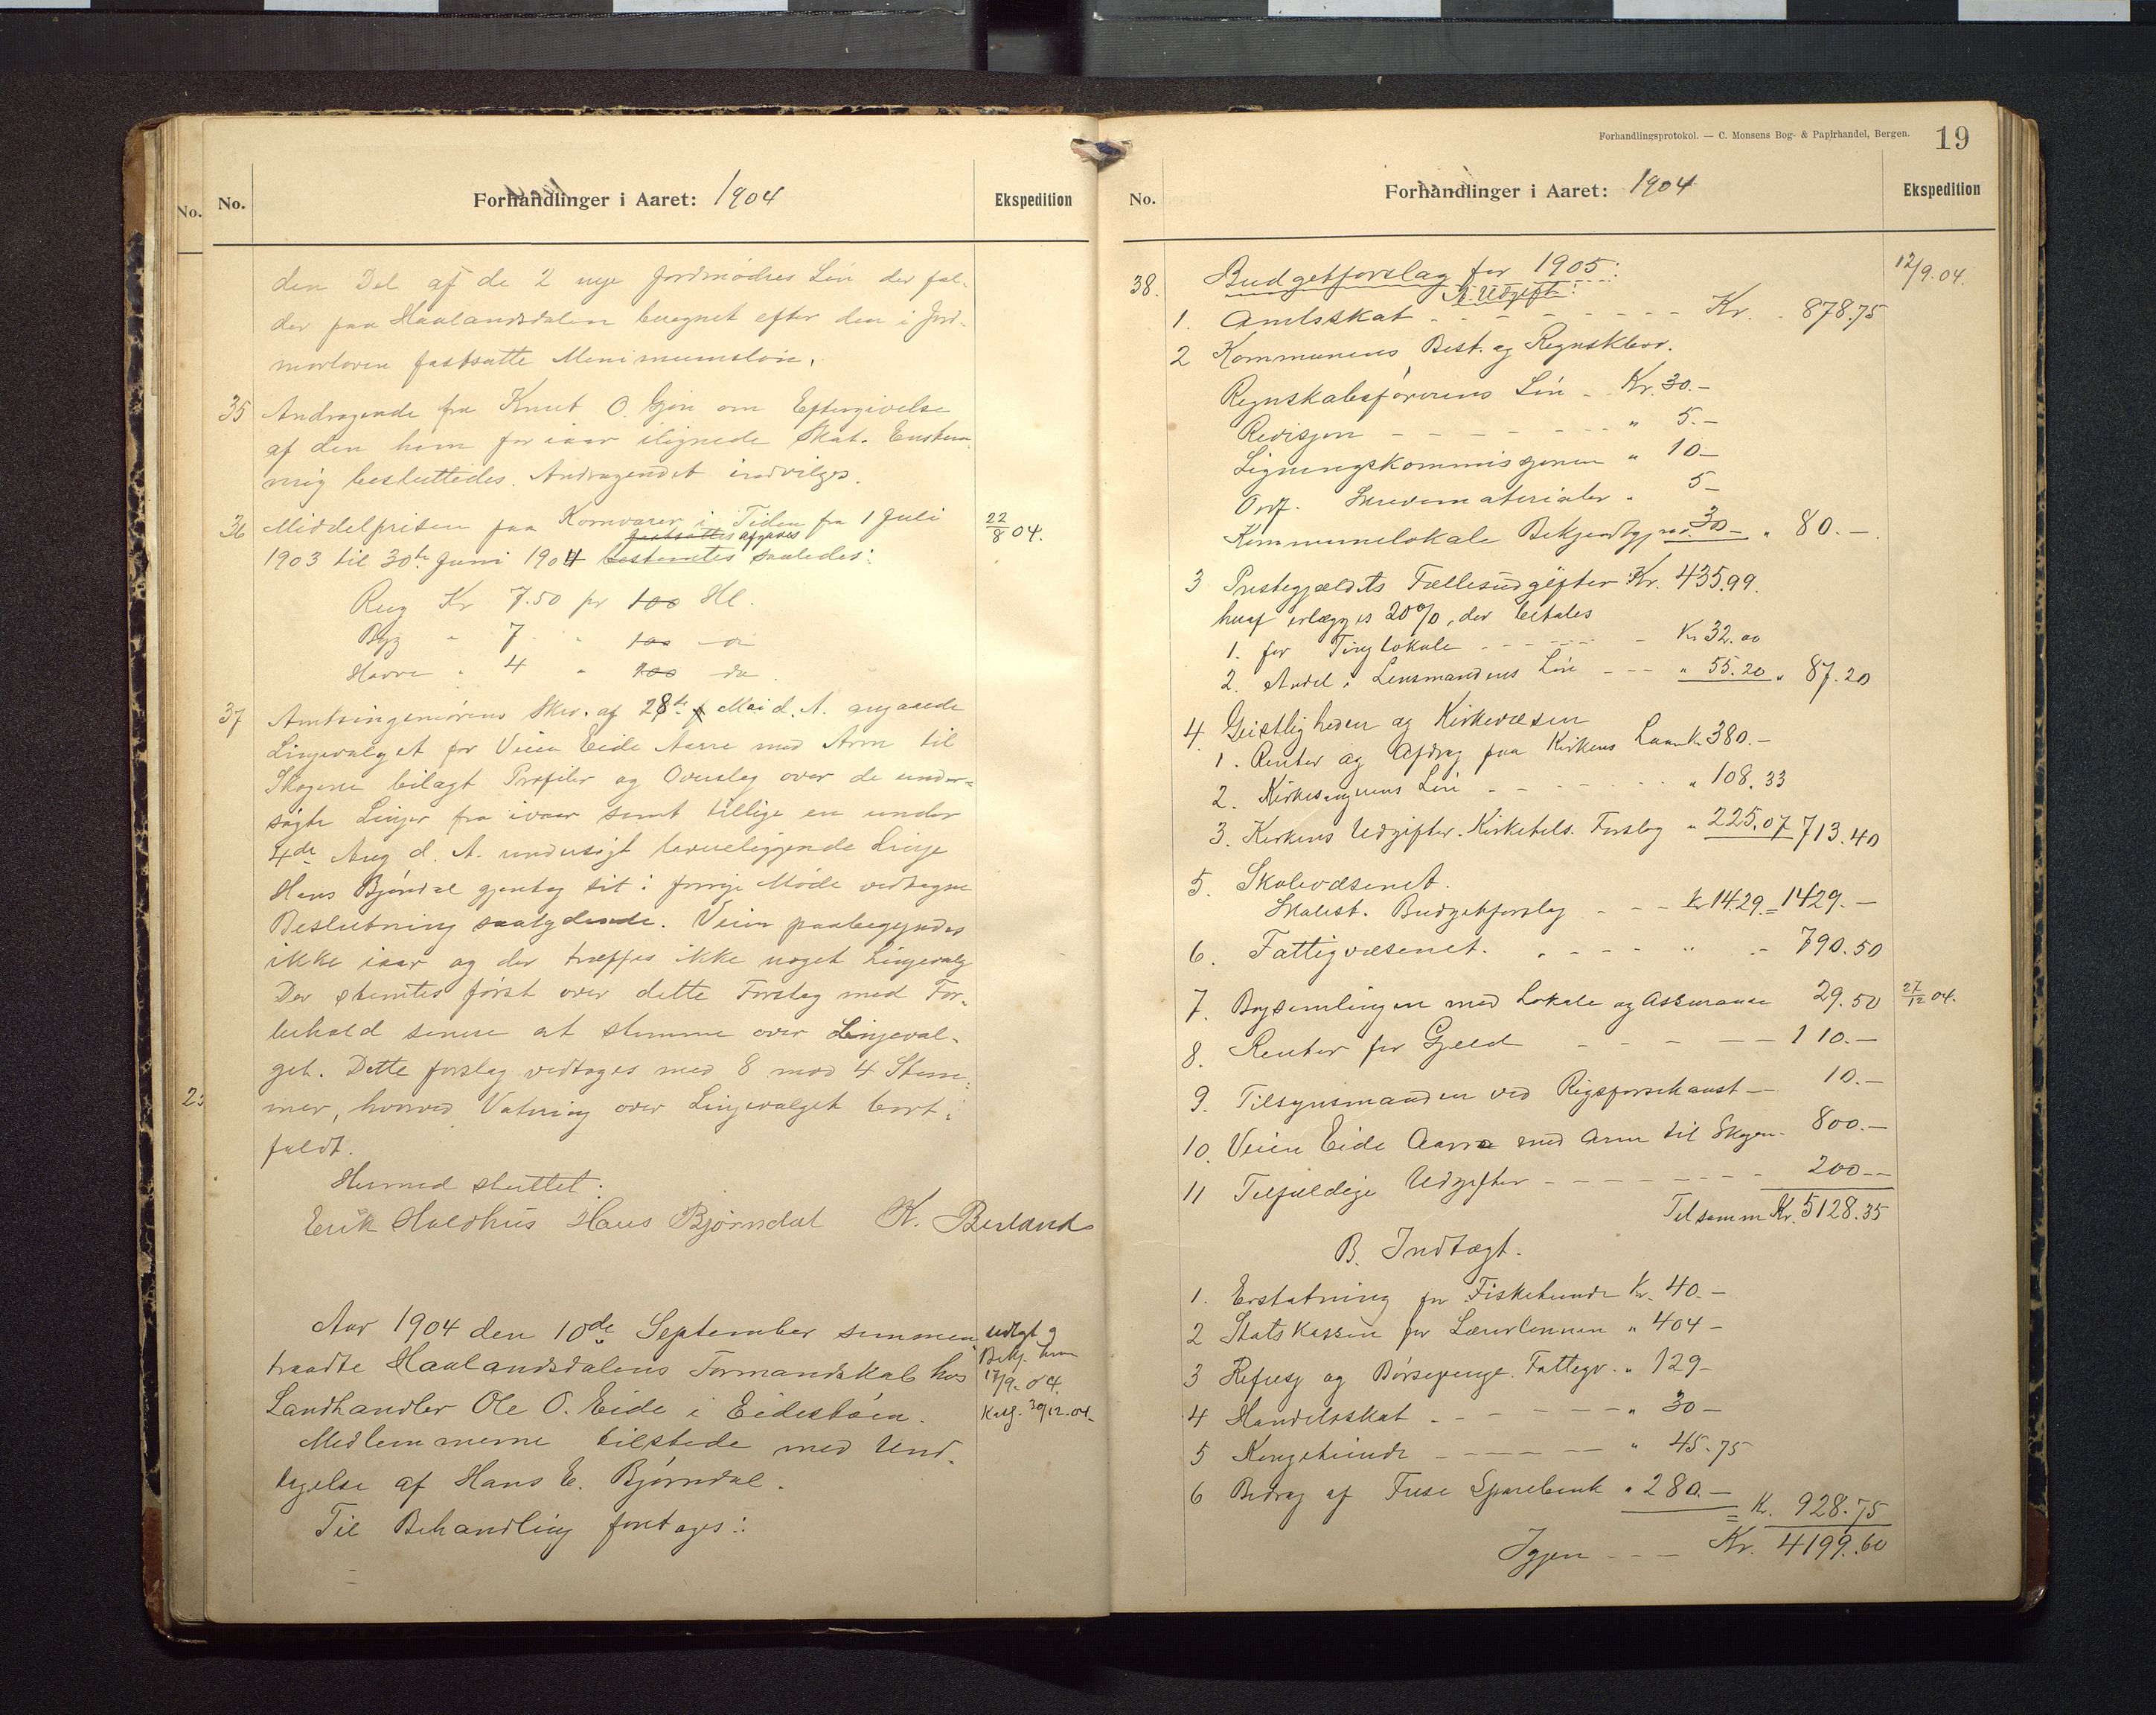 No.
No.
Forhandlinger i Aaret: 1904
Ekspedition
den Del af de 2 nye Jordmødres Løn der fal-
der paa Haalandsdalen beregnet efter den i Jord-
morloven fastsatte Menimumsløn.
35 Andragende fra Knut O. Gjøn om Eftergivelse
af den ham for iaar ilignede Skat. Enstem-
mig besluttedes. Andragendet indvilges.
36 Middelprisen paa Kornvarer i Tiden fra 1 Juli
22/8 04.
fastsattes afgaves
1903 til 30te Juni 1904 bestemtes saaledes:
Rug Kr 7.50 pr 100 Hl.
Byg " 7 " 100 do
Havre " 4 " 100 do.
37 Amtsingeniørens Skr. af 28de Mai d. A. angaaede
Linjevalget for Veien Eide Aarra med Arm til
Skogen bilagt Profiler og Overslag over de under-
søgte Linjer fra ivaar samt tillige en under
4de Aug d. A. undersøgt laveeliggende Linje
Hans Bjørndal gjentog sit i forrige Møde vedtagne
Beslutning saalydende. Veien paabegyndes
ikke iaar og der træffes ikke noget Linjevalg
Der stemtes først over dette Forslag med For-
behold senere at stemme over Linjeval-
get. Dette forslag vedtoges med 8 mod 4 Stem-
23
mer, hvorved Votering over Linjevalget bort-
faldt.
Hermed sluttet:
Erik Holdhus Hans Bjørndal K. Berland
Aar 1904 den 10de September sammen-
traadte Haalandsdalens Formandskab hos
Landhandler Ole O. Eide i Eidestøen.
Medlemmerne tilstede med Und-
tagelse af Hans E. Bjørndal.
Til Behandling foretoges:
Udlagt og
Bekj. herom
17/9. 04.
30/12.04.
Forhandlingsprotokol. — C. Monsens Bog- & Papirhandel, Bergen.
19
No.
Forhandlinger i Aaret: 1904
Ekspedition
38. Budgetforslag for 1905:
12/9.04.
A. Udgift:
1. Amtsskat - - - Kr. 878.75
2 Kommunens Best. og Regnskbsv.
Regnskabsførerens Løn - Kr. 30.-
Revisjon - - - " 5.-
Ligningskommissjonen " 10-
Ordf. Skrivematerialer " 5-
Kommunelokale Bekjendtgj. m.m. 30- " 80.-
3 Prestegjældets Fællesudgifter Kr. 435.99.
hvaf erlægges 20%, der betales
1. for Tinglokale - - - Kr 32.00
2. Andel i Lensmandens Løn - - - " 55.20 " 87.20
4. Geistligheden og Kirkevæsen
1. Renter og Afdrag paa Kirkens Laan Kr 380.-
2. Kirkesangerens Løn - - - " 108.33
3. Kirkens Udgifter. Kirketils. Forslag " 225.07 713.40
5. Skolevæsenet.
Skolest. Budgetforslag - - - Kr 1429.= 1429.-
6. Fattigvæsenet. - - - " - 790.50
7. Bogsamlingen med Lokale og Assurance 29.50
27/12 04.
8. Renter for Gjeld - - - 110.-
9. Tilsynsmanden ved Rigsforsikanst - 10.-
10. Veien Eide Aarra med Arm til Skogen - 800.-
11 Tilfældige Udgifter - - - 200-
Tilsamm Kr. 5128.35
B. Indtægt.
1. Erstatning for Fisketiende Kr. 40.-
2 Statskassen for Lærerlønnen " 404-
3 Refusj og Børsepenge. Fattigv. " 129-
4 Handelsskat - - - " 30-
5 Kongetiende - - - " 45.75
6 Bidrag af Fuse Sparebank " 280.-
= Kr. 928.75
Igjen - - - Kr. 4199.60